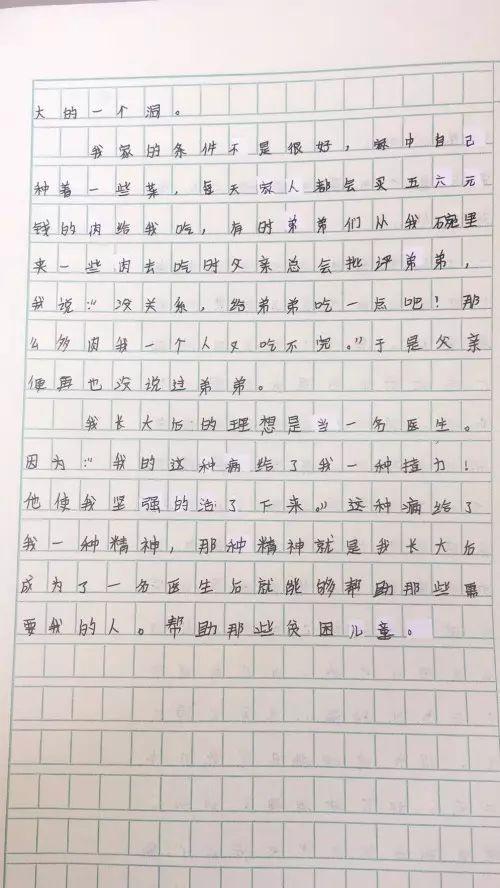 大的一个洞。
我家的条件不是很好，家中自己
种着一些菜，每天家人都会买五六元
钱的肉给我吃，有时弟弟们从我碗里
夹一些肉去吃时父亲总会批评弟弟，
我说：“没关系，给弟弟吃一点吧！那
么多肉我一个人又吃不完。”于是父亲
便再也没说过弟弟。
我长大后的理想是当一名医生。
因为：“我的这种病给了我一种挂力！
他使我坚强的活了下来。”这种病给了
我一种精神，那种精神就是我长大后
成为了一名医生后就能够帮助那些需
要我的人。帮助那些贫困儿童。